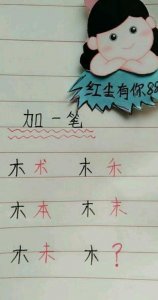 红尘有你88
加一笔
木术 木禾
木本 木末
木未 木?